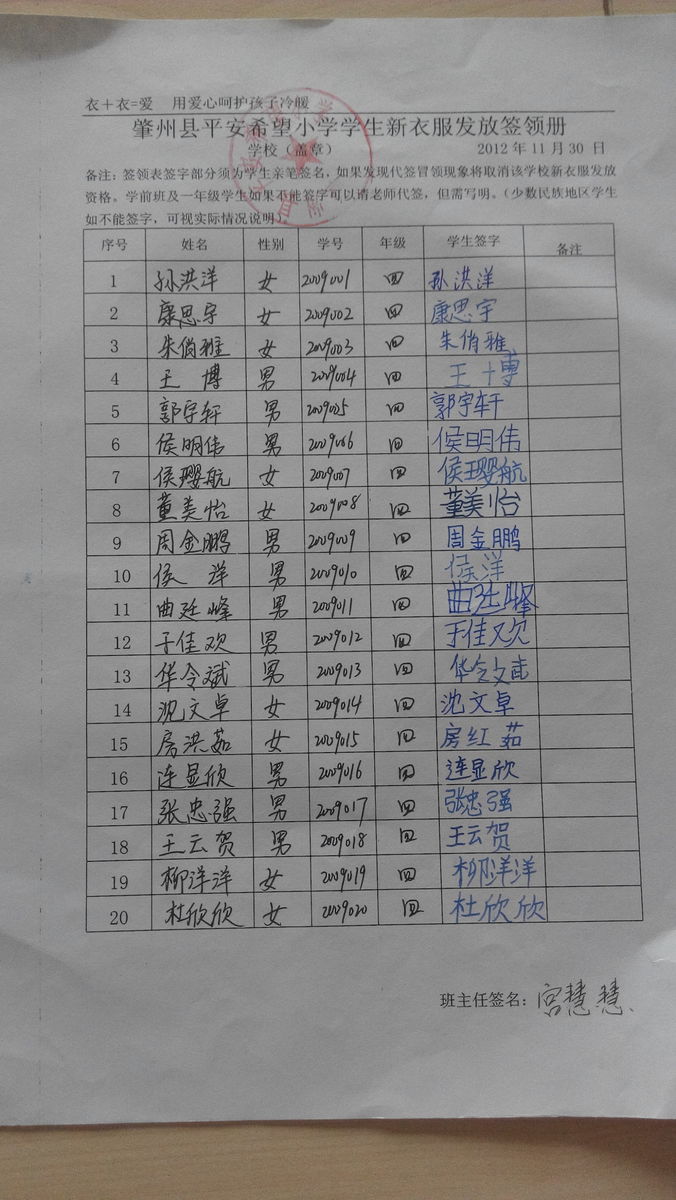 衣＋衣=爱 用爱心呵护孩子冷暖
肇州县平安希望小学学生新衣服发放签领册
学校（盖章） 2012 年 11 月 30 日
备注：签领表签字部分须为学生亲笔签名，如果发现代签冒领现象将取消该学校新衣服发放
资格。学前班及一年级学生如果不能签字可以请老师代签，但需写明。（少数民族地区学生
如不能签字，可视实际情况说明）。
序号 姓名 性别 学号 年级 学生签字 备注
1 孙洪洋 女 2009001 四 孙洪洋
2 康思宇 女 2009002 四 康思宇
3 朱俏雅 女 2009003 四 朱俏雅
4 王博 男 2009004 四 王博
5 郭宇轩 男 2009005 四 郭宇轩
6 侯明伟 男 2009006 四 侯明伟
7 侯璎航 女 2009007 四 侯璎航
8 董美怡 女 2009008 四 董美怡
9 周金鹏 男 2009009 四 周金鹏
10 侯洋 男 2009010 四 侯洋
11 曲廷峰 男 2009011 四 曲廷峰
12 于佳欢 男 2009012 四 于佳欢
13 华令斌 男 2009013 四 华令斌
14 沈文卓 女 2009014 四 沈文卓
15 房洪茹 女 2009015 四 房红茹
16 连显欣 男 2009016 四 连显欣
17 张忠强 男 2009017 四 张忠强
18 王云贺 男 2009018 四 王云贺
19 柳洋洋 女 2009019 四 柳洋洋
20 杜欣欣 女 2009020 四 杜欣欣
班主任签名：宫慧慧